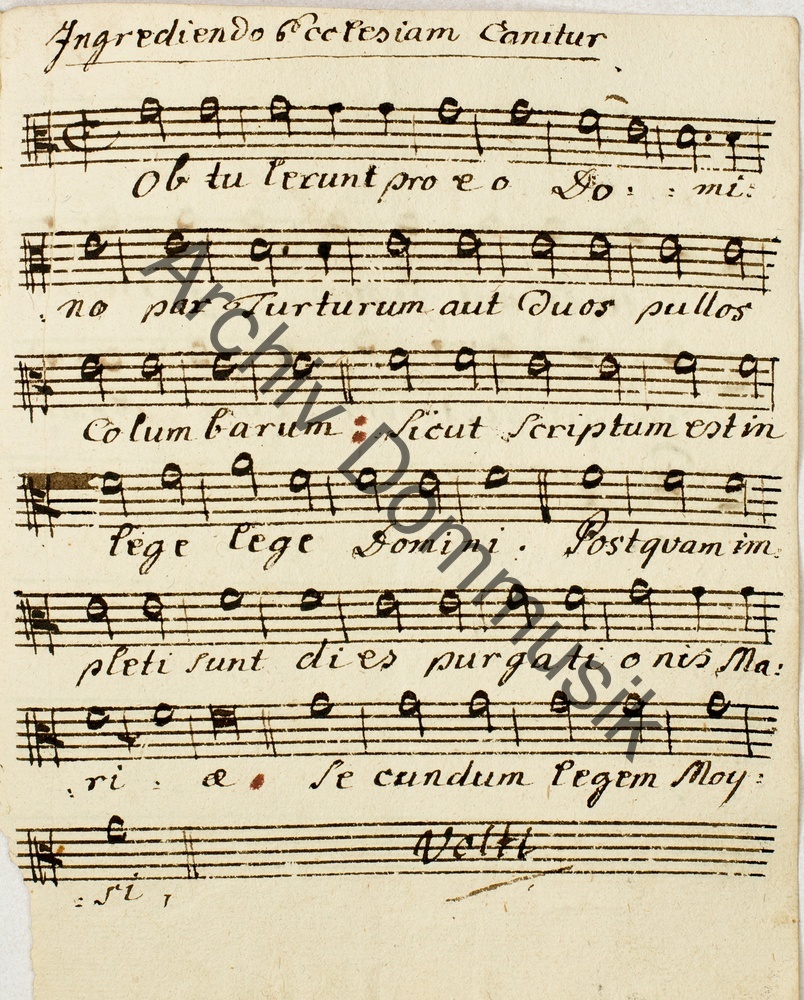 Ingrediendo Ecclesiam Canitur
Ob tu lerunt pro e o Do : : mi:
: no par Turturum aut Duos pullos
Co lum barum : Sicut Scriptum est in
lege lege Domini . Postquam im:
pleti sunt dies purgati o nis Ma:
: ri : æ . Se cundum legem Moy:
Volti
: si ,
Archiv Dommusik